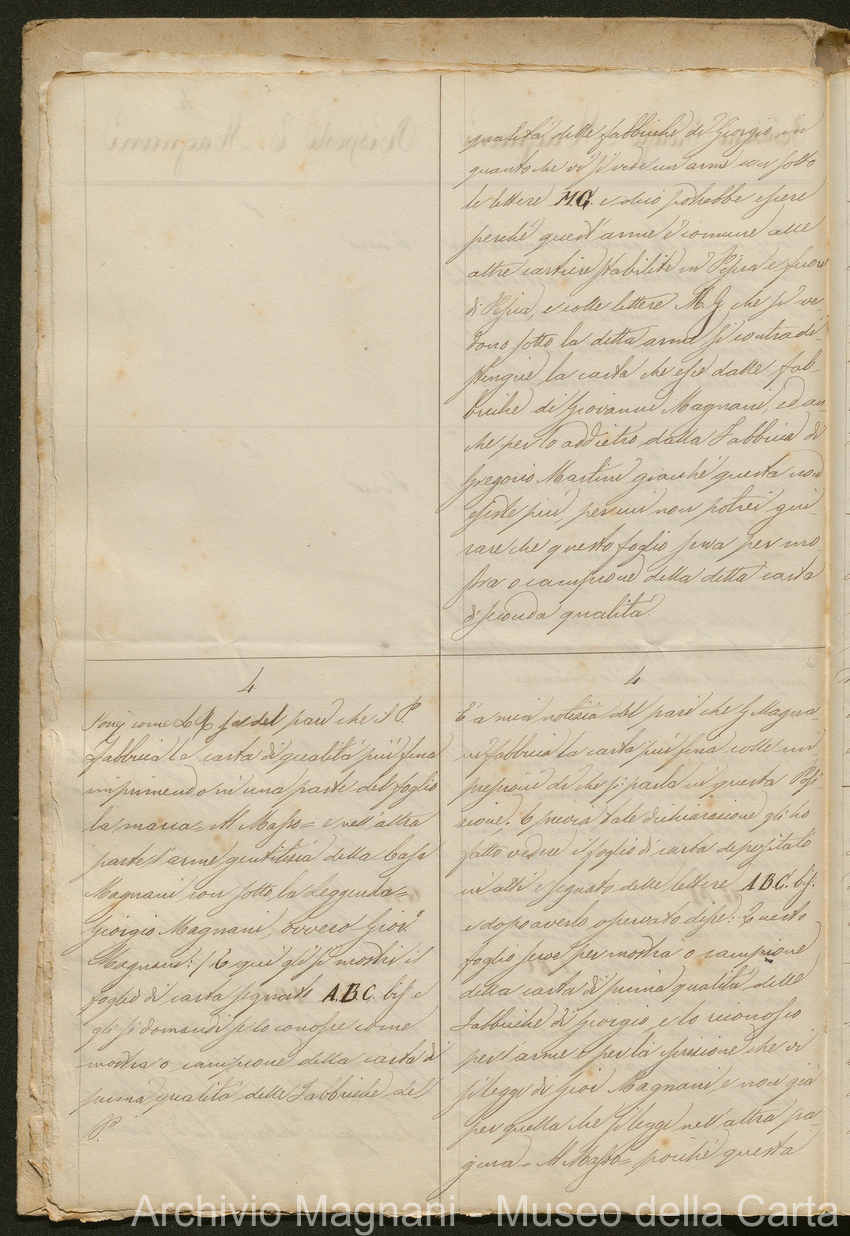 qualità delle fabbriche di Giorgio, in
quanto che vi si vede un arme con sotto
le lettere M.G. e ciò potrebbe essere
perché quest'arme è comune alle
altre cartiere stabilite in Pescia e fuori
di Pescia, e colle lettere M.G. che si ve-
dono sotto la detta arma si contradi-
stingue la carta che esce dalle fab-
briche di Giovanni Magnani, ed an-
che per lo addietro dalla Fabbrica di
Gregorio Martini giacché questa non
esiste più, per cui non potrei giu-
rare che questo foglio serva per mo-
stra o campione della detta carta
di seconda qualità.
4
come pare che il P.
Fabbrica la carta di qualità più fina
imprimendo in una parte del foglio
la marca = Al Masso = e nell'altra
parte l'arme gentilizia della Casa
Magnani con sotto la leggenda =
Giorgio Magnani, ovvero Gior.
Magnani: E qui gli si mostri il
foglio di carta segnato A.B.C. bis e
gli si domandi se lo conosce come
mostra o campione della carta di
prima qualità delle Fabbriche del
P.
4
È a mia notizia del pari che G. Magna-
ni fabbrica la carta più fina colle im-
pressioni di che si parla in questa Posi-
zione. E previa tale dichiarazione gli ho
fatto vedere il foglio di carta depositato
in atti e segnato delle lettere A.B.C. bis.
e dopo averlo osservato disse: Questo
foglio serve per mostra o campione
della carta di prima qualità delle
Fabbriche di Giorgio, e lo riconosco
per l'arme e per la iscrizione che vi
si legge di Gior. Magnani e non già
per quella che si legge nell'altra pa-
gina = Al Masso = poiché questa
Archivio Magnani - Museo della Carta